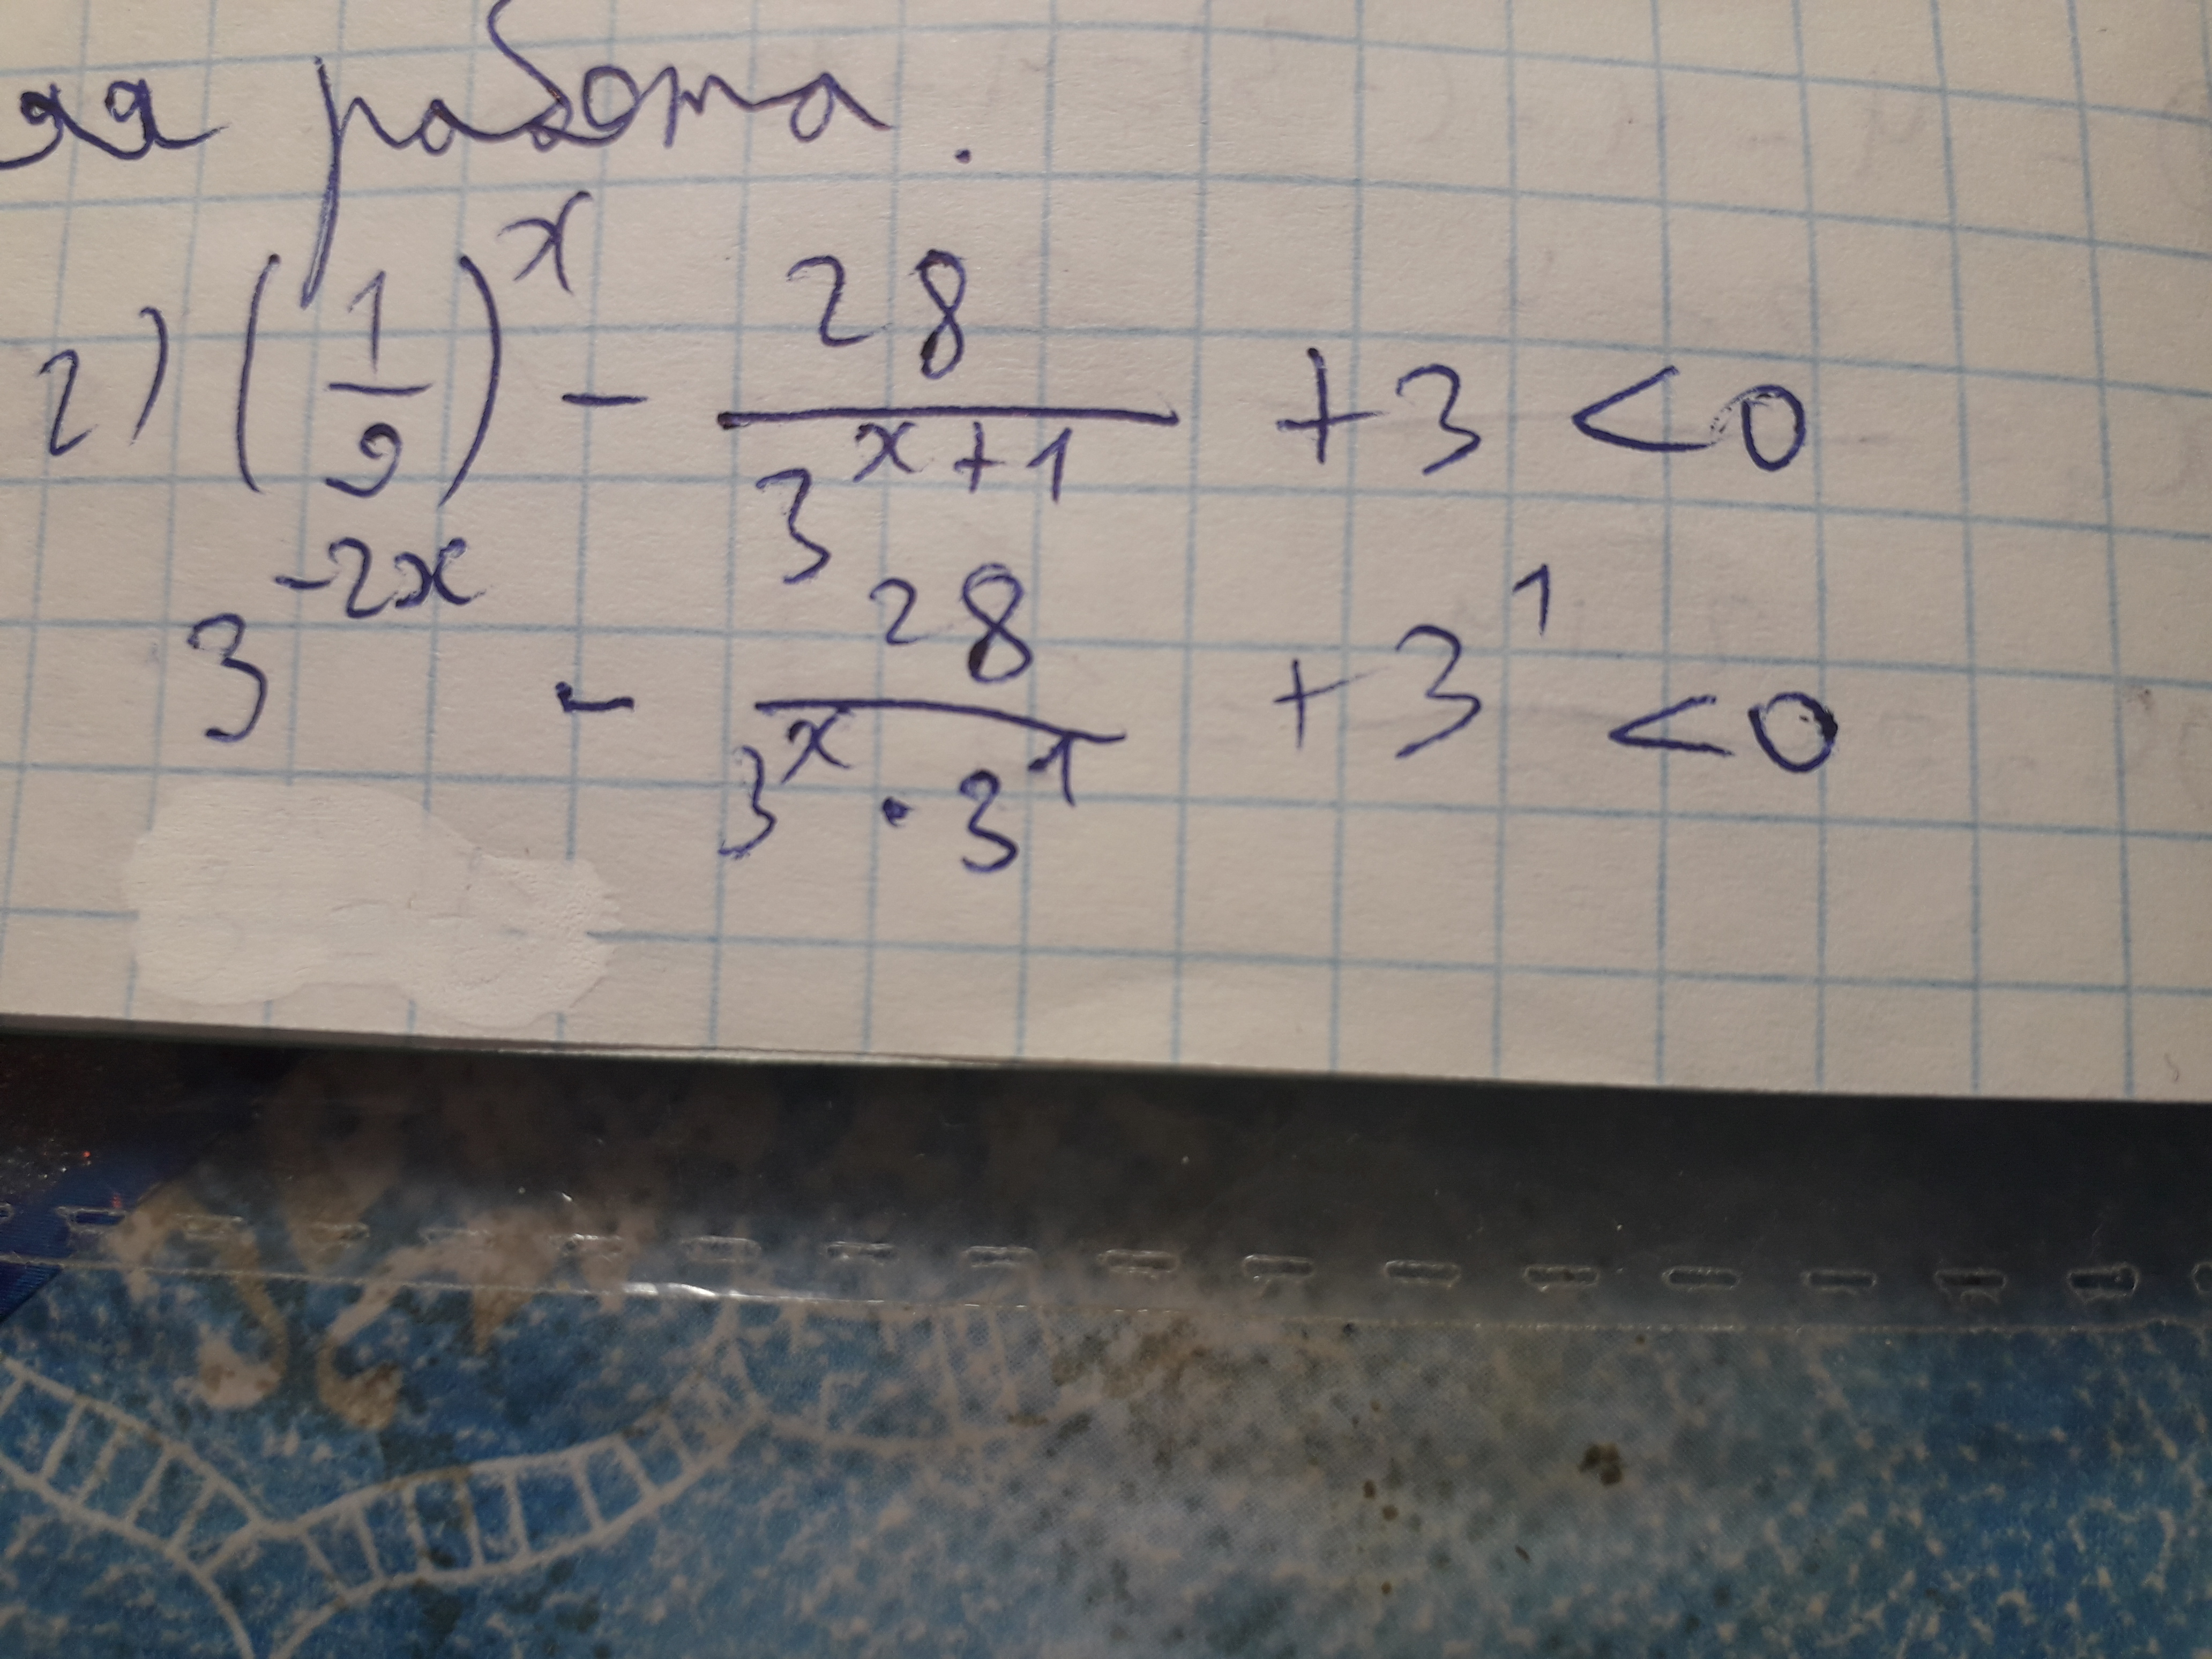 ая работа.
2) (1/9)^x - 28/3^(x+1) + 3 < 0
3^(-2x) - 28/(3^x · 3^1) + 3^1 < 0